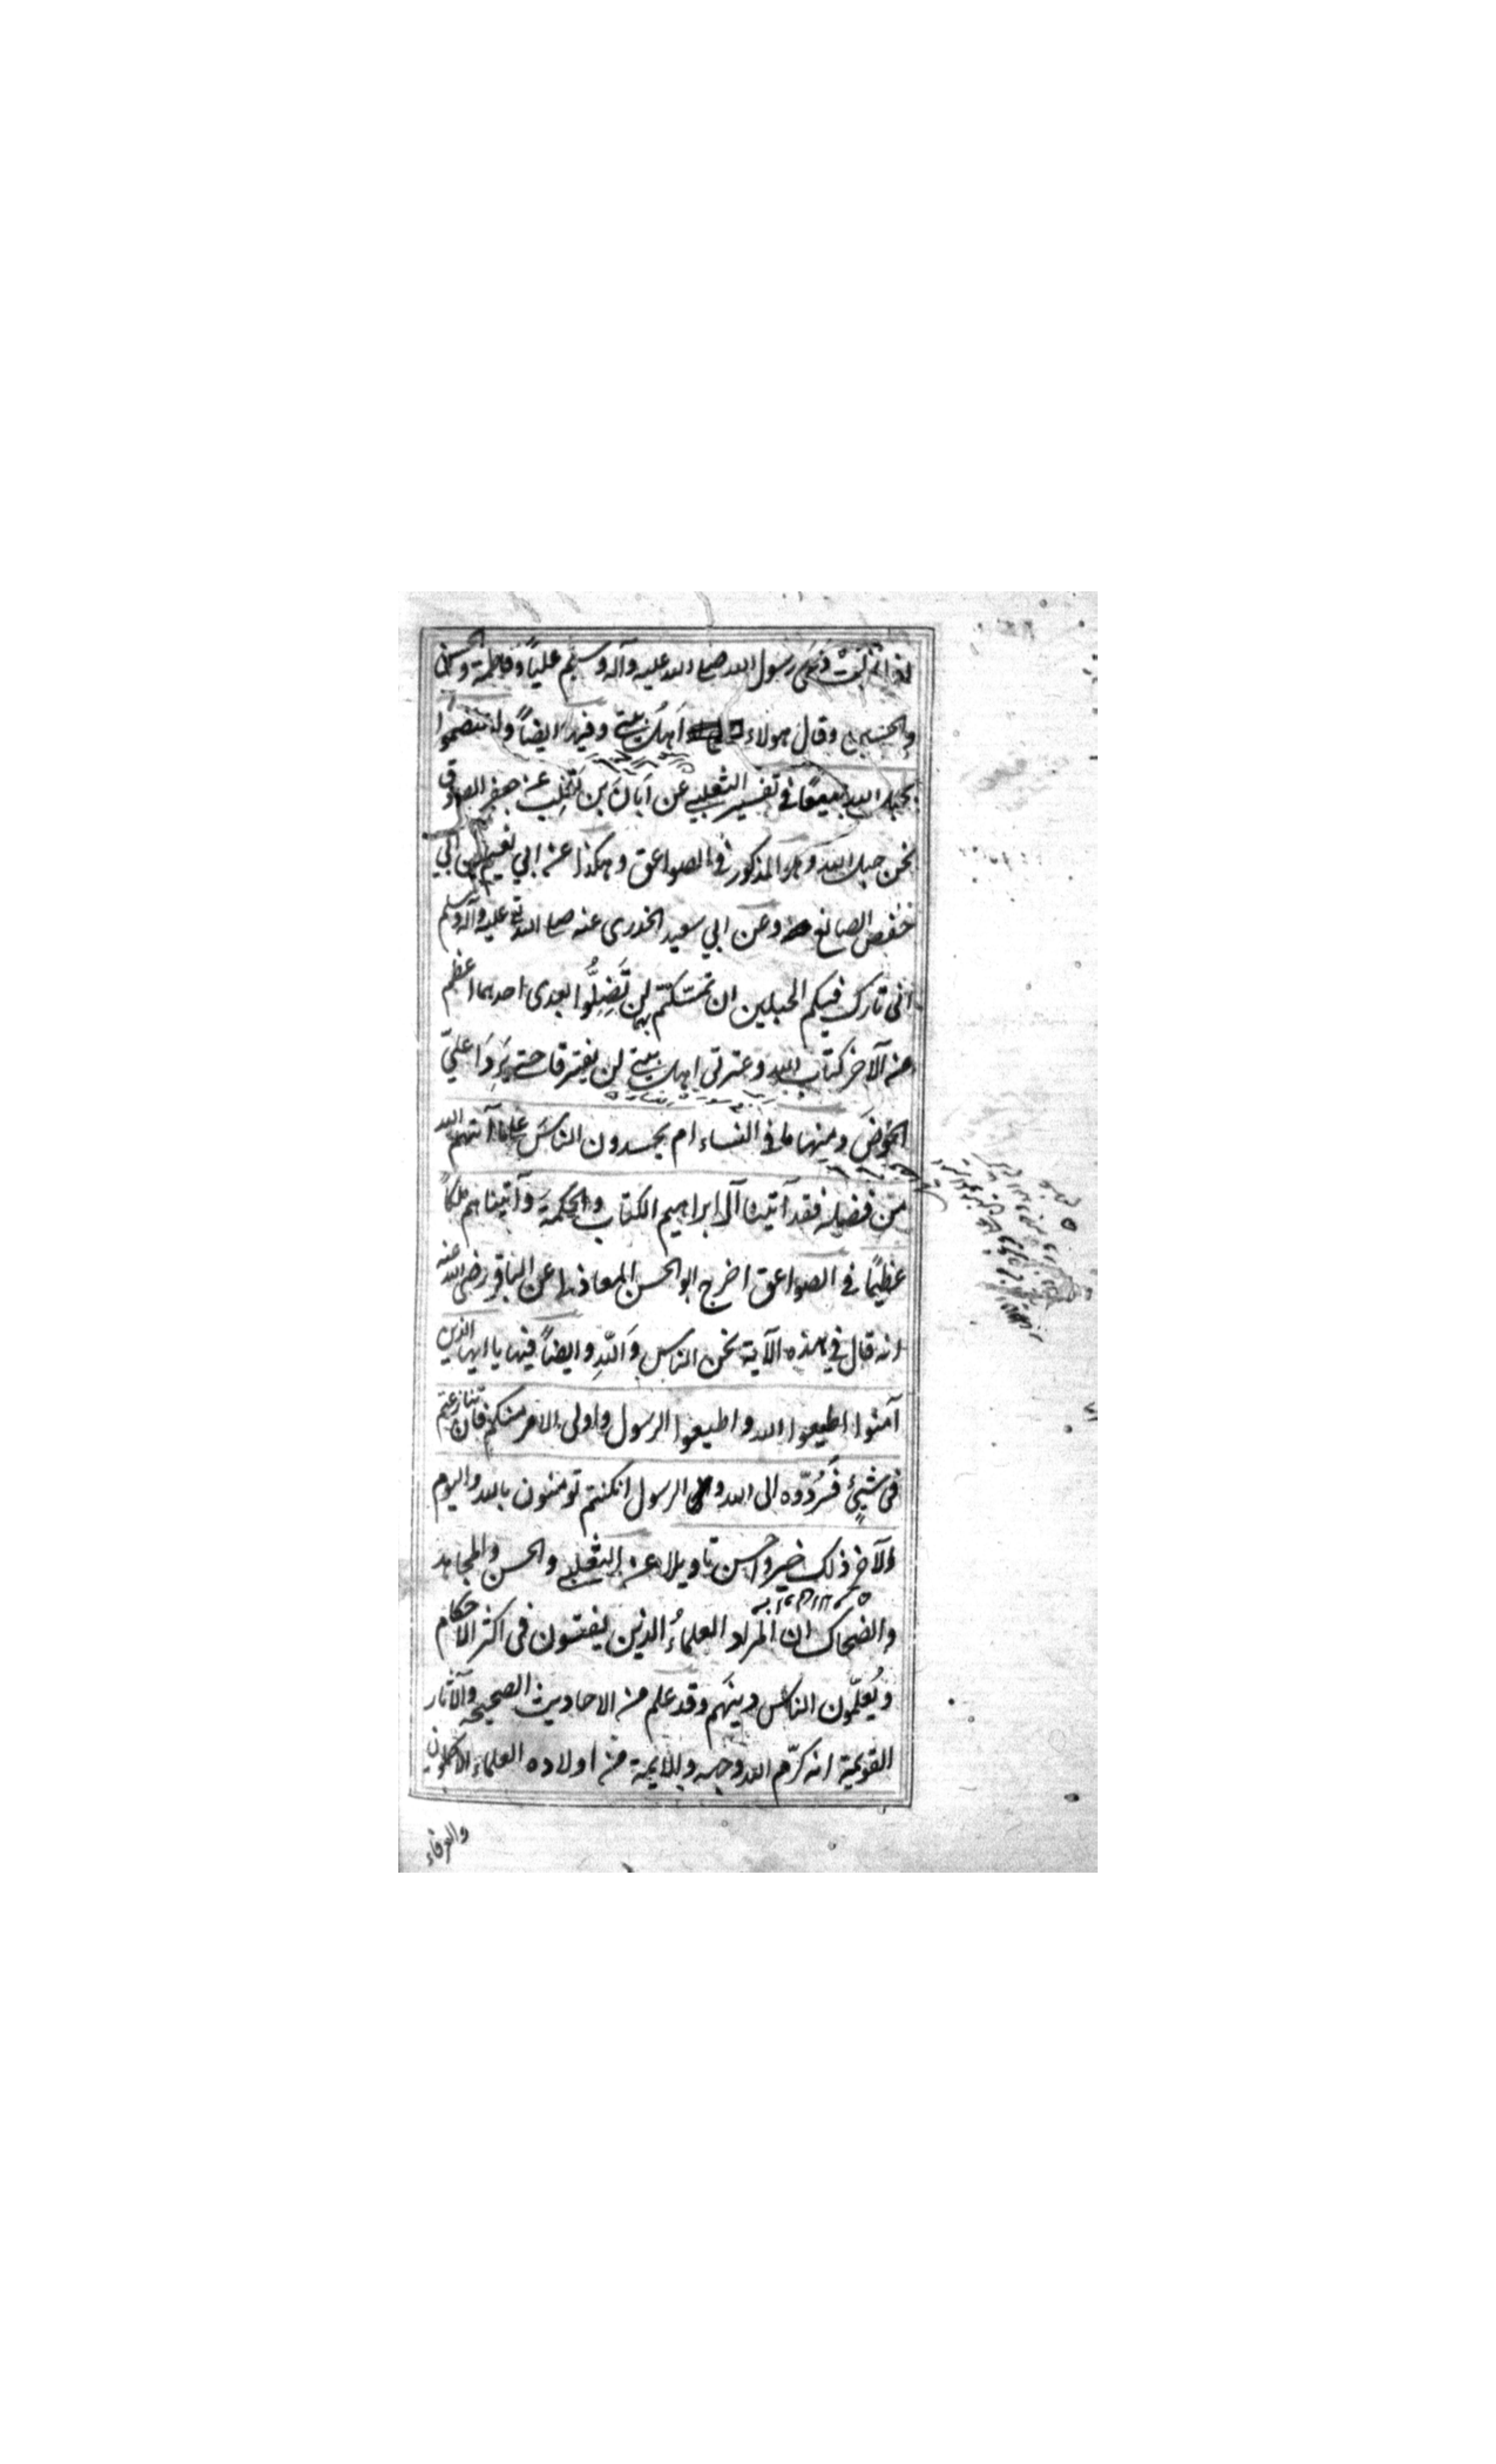 لما نزلت دَعَى رسول الله صلى الله عليه وآله وسلم علياً وفاطمة والحسن
والحسين وقال هولاء اَهلُ بيتى وفيها ايضاً واعتصموا
بحبل الله جميعًا فى تفسير الثعلبى عن اَبانَ بن تَغلِب عن جعفر الصادق
نحن حبل الله وهو المذكور فى الصواعق وهكذا عن ابي نعيم عن ابي
حفص الصايغ وعن ابي سعيد الخدرى عنه صلى الله تع عليه وآله وسلم
انى تارك فيكم الحبلين ان تمسّكتم بهما لن تَضِلُّوا بعدى احدهما اعظم
من الآخر كتاب الله وعترتى اهل بيتى لن يفترقا حتى يَرِدَا علىّ
الحوضَ ومنها ما فى النساء ام يحسدون الناسَ على ما آتٰهم الله
من فضله فقد آتينا آل ابراهيم الكتاب والحكمةَ وآتيناهم ملكاً
عظيمًا فى الصواعق اخرج ابو الحسن المعاذلى عن الباقر رضى الله عنه
انه قال فى هذه الآية نحن الناس وَاللّهِ وايضاً فيها يا ايها الذين
آمنوا اطيعوا الله واطيعوا الرسول واولى الامر منكم فان تنازعتم
فى شيئٍ فَرُدّوه الى الله والى الرسول انكنتم تومنون بالله واليوم
الآخر ذلك خير واحسن تاويلا عن الثعلبى والحسن والمجاهد
والضحاك ان المراد العلماءُ الذين يفتون فى اكثر الاحكام
ويُعلّمون الناس دينَهم وقد علم من الاحاديث الصحيحه والآثار
القويمة انه كرّم الله وجهه والايمة من اولاده العلماء الاكملون
والعرفاء